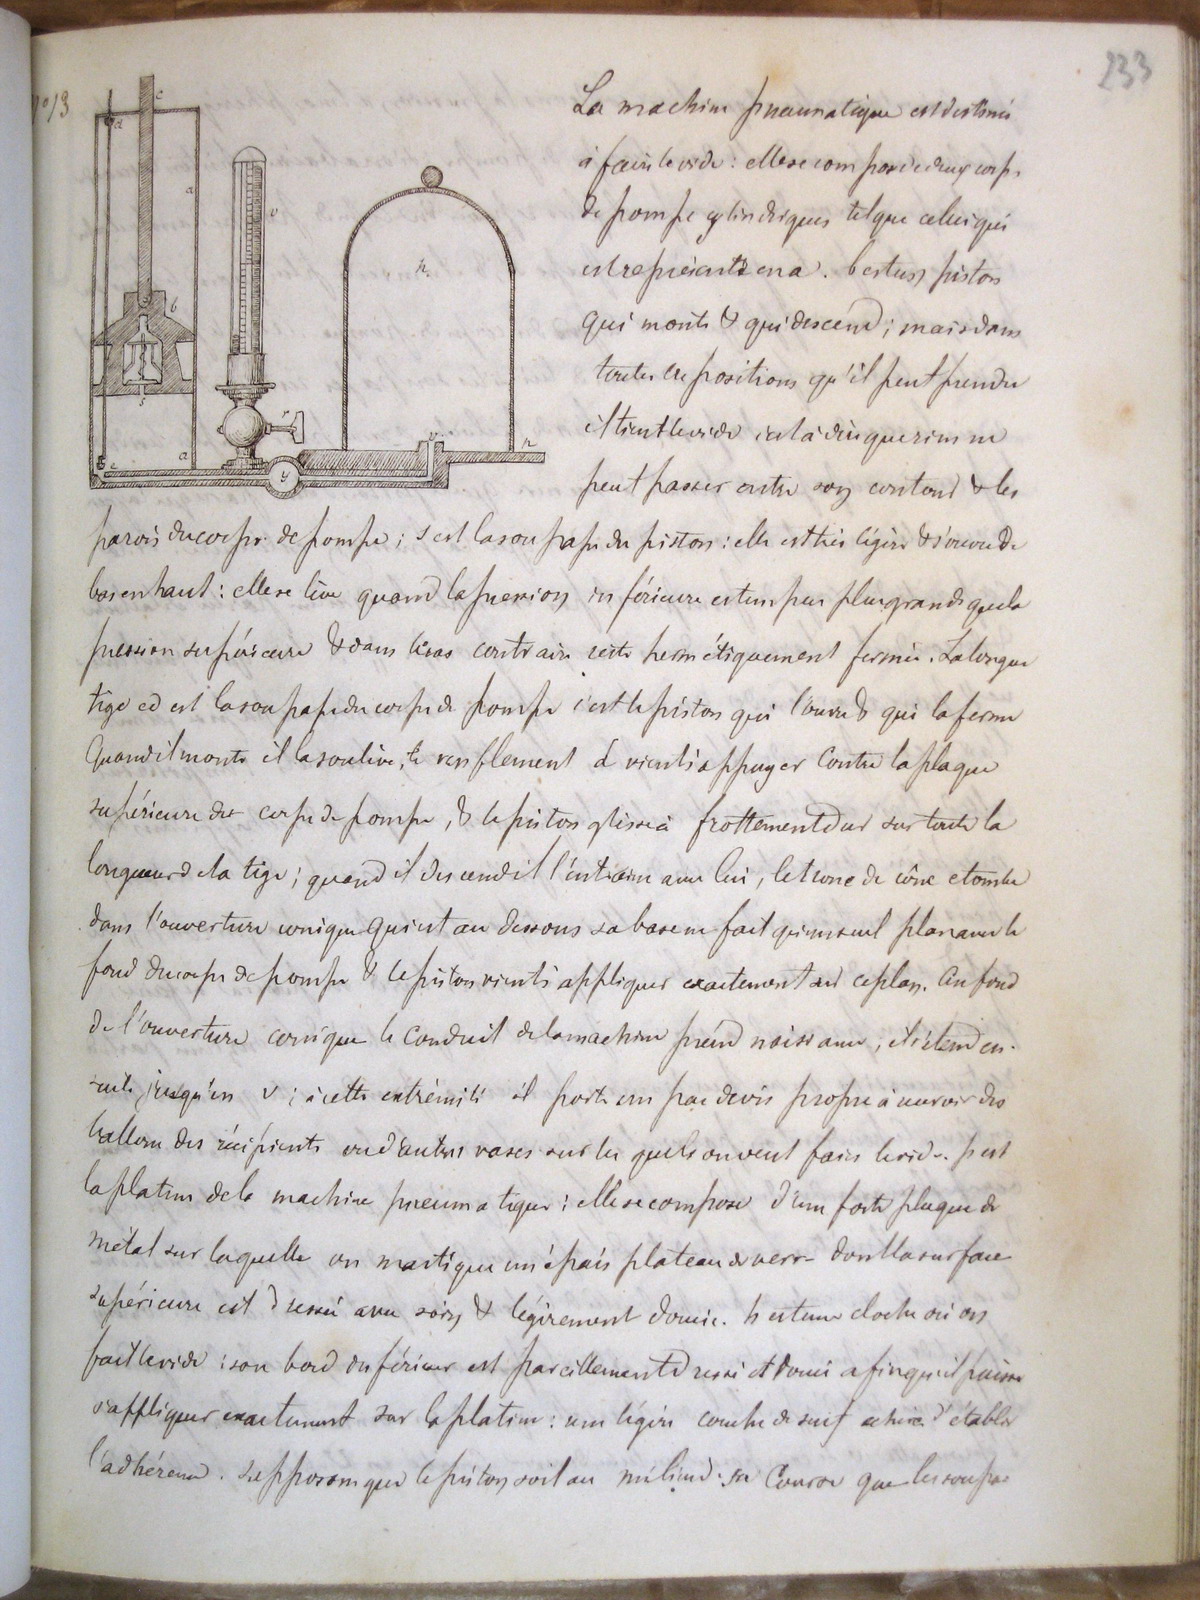 233
n° 13
La machine pneumatique est destinée
à faire le vide : elle se compose de deux corps
de pompe cylindriques tel que celui qui
est représenté en a. b est un piston
qui monte & qui descend ; mais dans
toutes les positions qu'il peut prendre
il tient le vide c'est à dire que rien ne
peut passer entre son contour & les
parois du corps de pompe ; s est la soupape du piston : elle est très légère & s'ouvre de
bas en haut : elle se lève quand la pression inférieure est un peu plus grande que la
pression supérieure & dans le cas contraire reste hermétiquement fermée. La longue
tige cd est la soupape du corps de pompe c'est le piston qui l'ouvre & qui la ferme
Quand il monte il la soulève, le renflement d vient s'appuyer contre la plaque
supérieure du corps de pompe, & le piston glisse à frottement dur sur toute la
longueur de la tige ; quand il descend il l'entraine avec lui, le tronc de cône c tombe
dans l'ouverture conique qui est au dessous sa base ne fait qu'un seul plan avec le
fond du corps de pompe & le piston vient s'appliquer exactement sur ce plan. Au fond
de l'ouverture conique le conduit de la machine prend naissance, il s'étend en-
suite jusqu'en v ; à cette extrémité il porte un pas de vis propre à recevoir des
ballons des récipients ou d'autres vases sur lesquels on veut faire le vide. p est
la platine de la machine pneumatique : elle se compose d'une forte plaque de
métal sur laquelle on mastique un épais plateau de verre dont la surface
supérieure est dressée avec soin & légèrement doucie. h est une cloche où on
fait le vide : son bord inférieur est pareillement dressé et douci afin qu'il puisse
s'appliquer exactement sur la platine : une légère couche de suif achève d'établir
l'adhérence. Supposons que le piston soit au milieu de sa course que les soupa-